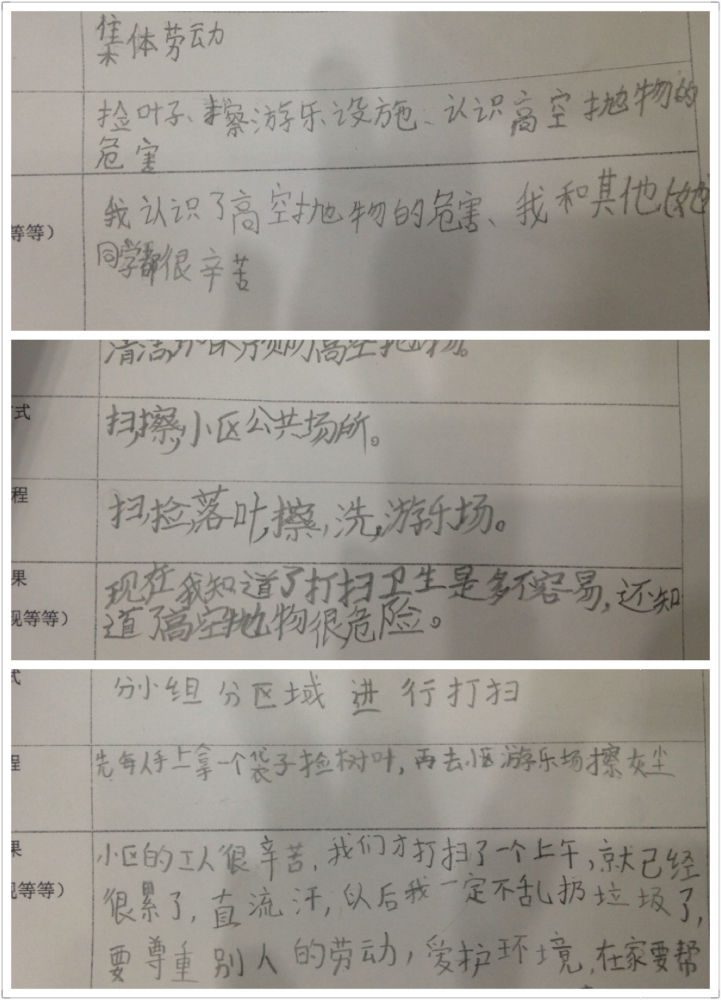 集体劳动
捡叶子、擦游乐设施、认识高空抛物的
危害
等等)
我认识了高空抛物的危害、我和其他(她)
同学都很辛苦
高空抛物。
式
扫,擦,小区公共场所。
程
扫,捡,落叶,擦,洗,游乐场。
果
现在我知道了打扫卫生是多不容易,还知
观等等)
道了高空抛物很危险。
式
分小组分区域进行打扫
程
先每人手上拿一个袋子捡树叶,再去小区游乐场擦灰尘
果
小区的工人很辛苦,我们才打扫了一个上午,就已经
观等等)
很累了,直流汗,以后我一定不乱扔垃圾了,
要尊重别人的劳动,爱护环境,在家要帮